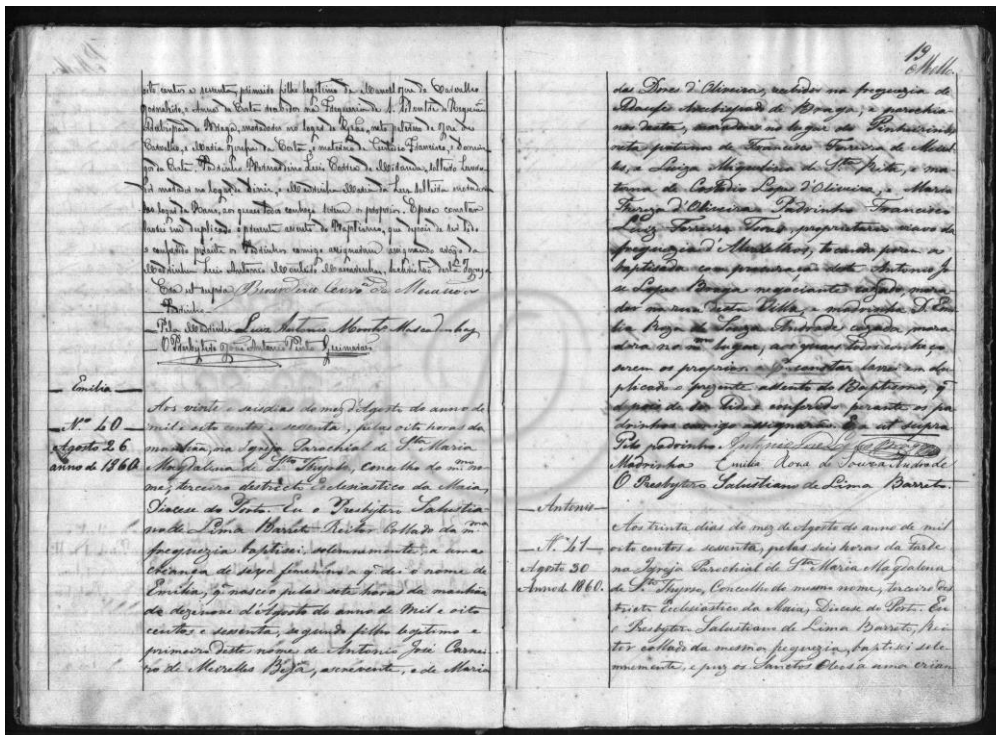 oito centos e sessenta, primeiro filho legitimo de Manoel José de Carvalho
e Anna da Costa recebidos na Freguezia de S.
Arcebispado de Braga, moradores no logar de neto paterno de José de
Carvalho, e Maria Josefa da Costa, e materno de Custodio e Domin-
gas da Costa. Padrinho Bernardino Luis Correia de Miranda, solteiro
morador no logar de e Madrinha Maria da Luz, solteira moradora
no logar de aos quaes todos conheço serem os proprios. E para constar
lavrei em duplicado o presente assento de Baptismo, que depois de ser lido
e conferido perante os Padrinhos comigo assignaram assignando a rogo da
Madrinha Luis Antonio Monteiro Mascarenhas, desta Igreja
Era ut supra
Padrinho
Pela Madrinha Luis Antonio Montro Mascarenhas
O Presbytero José Antonio Pinto Guimarães
Emilia
N.º 40
Agosto 26
anno de 1860
Aos vinte e seis dias do mez d'Agosto do anno de
mil e oito centos e sessenta, pelas oito horas da
manhãa, na Igreja Parochial de Sta Maria
Magdalena de Sto Thyrso, Concelho do mmo no-
me, terceiro destricto Eclesiastico da Maia,
Diocese do Porto. Eu o Presbytero Salustia
no de Lima Barreto Reitor Collado da mma
freguezia baptisei solemnemente, a uma
criança de sexo feminino a qm dei o nome de
Emilia, q nasceo pelas sete horas da manhãa
de dezenove d'Agosto do anno de mil e oito
centos e sessenta, segundo filho legitimo e
primeiro deste nome de Antonio José Carnei
ro de Meirelles Beja, escrevente, e de Maria
19
das Dores d'Oliveira, recebidos na freguezia de
Arcebispado de Braga; e parochia
nos desta, moradores no logar do Pinheirinho
neta paterna de Francisco Ferreira de Meirel
les, e Luiza Miquelina de Sta Rita, e ma-
terna de Custodio Lopes d'Oliveira, e Maria
Thereza d'Oliveira. Padrinho Francisco
Luiz Ferreira proprietario viuvo da
freguezia tocando porem a
baptisada com procuração deste Antonio Jo
se Lopes Braga negociante casado, mora
dor na rua desta Villa, e madrinha D. Emi
lia Roza de Souza Andrade cazada, mora
dora no mmo logar, aos quaes todos conheço
serem os proprios. E p.ª constar lavrei em du
plicado o prezente assento de Baptismo, q
depois de ser lido e conferido perante os pa
drinhos comigo assignarão. Era ut supra
Pelo padrinho Antonio José Lopes Braga
Madrinha Emilia Rosa de Souza Andrade
O Presbytero Salustiano de Lima Barreto.
Antonio
N.º 41
Agosto 30
Anno de 1860.
Aos trinta dias do mez de Agosto do anno de mil
oito centos e sessenta, pelas seis horas da tarde
na Igreja Parochial de Sta Maria Magdalena
de Sto Thyrso, Concelho do mesmo nome, terceiro des
tricto Eclesiastico da Maia, Diocese do Porto. Eu
o Presbytero Salustiano de Lima Barreto, Rei
tor collado da mesma freguezia, baptisei sole
mnemente, e puz os Sanctos Oleos a uma crian